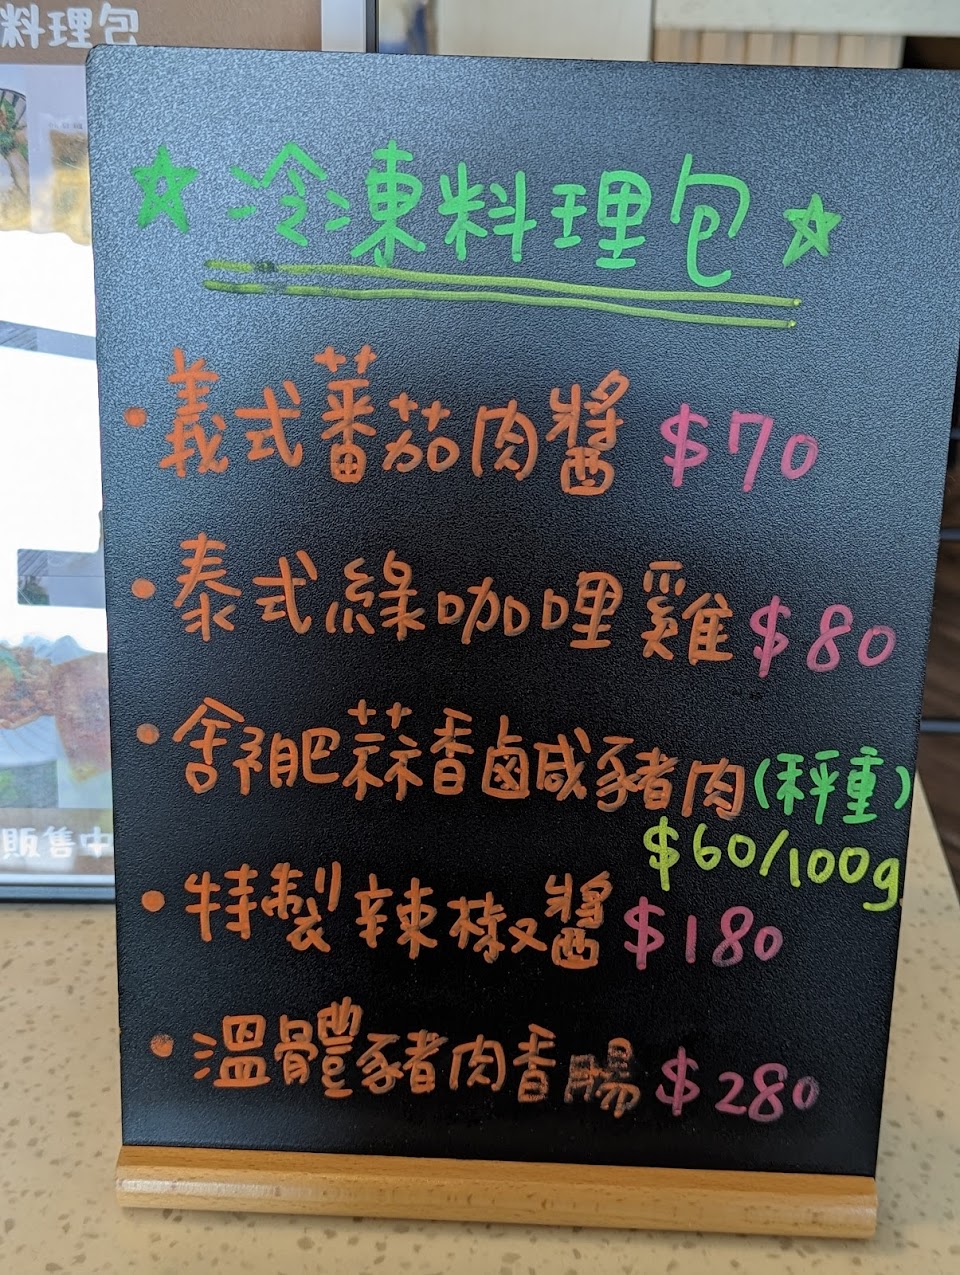 料理包
☆冷凍料理包☆
・義式蕃茄肉醬 $70
・泰式綠咖哩雞 $80
・舒肥蒜香鹵咸豬肉(秤重)
$60/100g
・特製辣椒醬 $180
・溫體豬肉香腸 $280
販售中